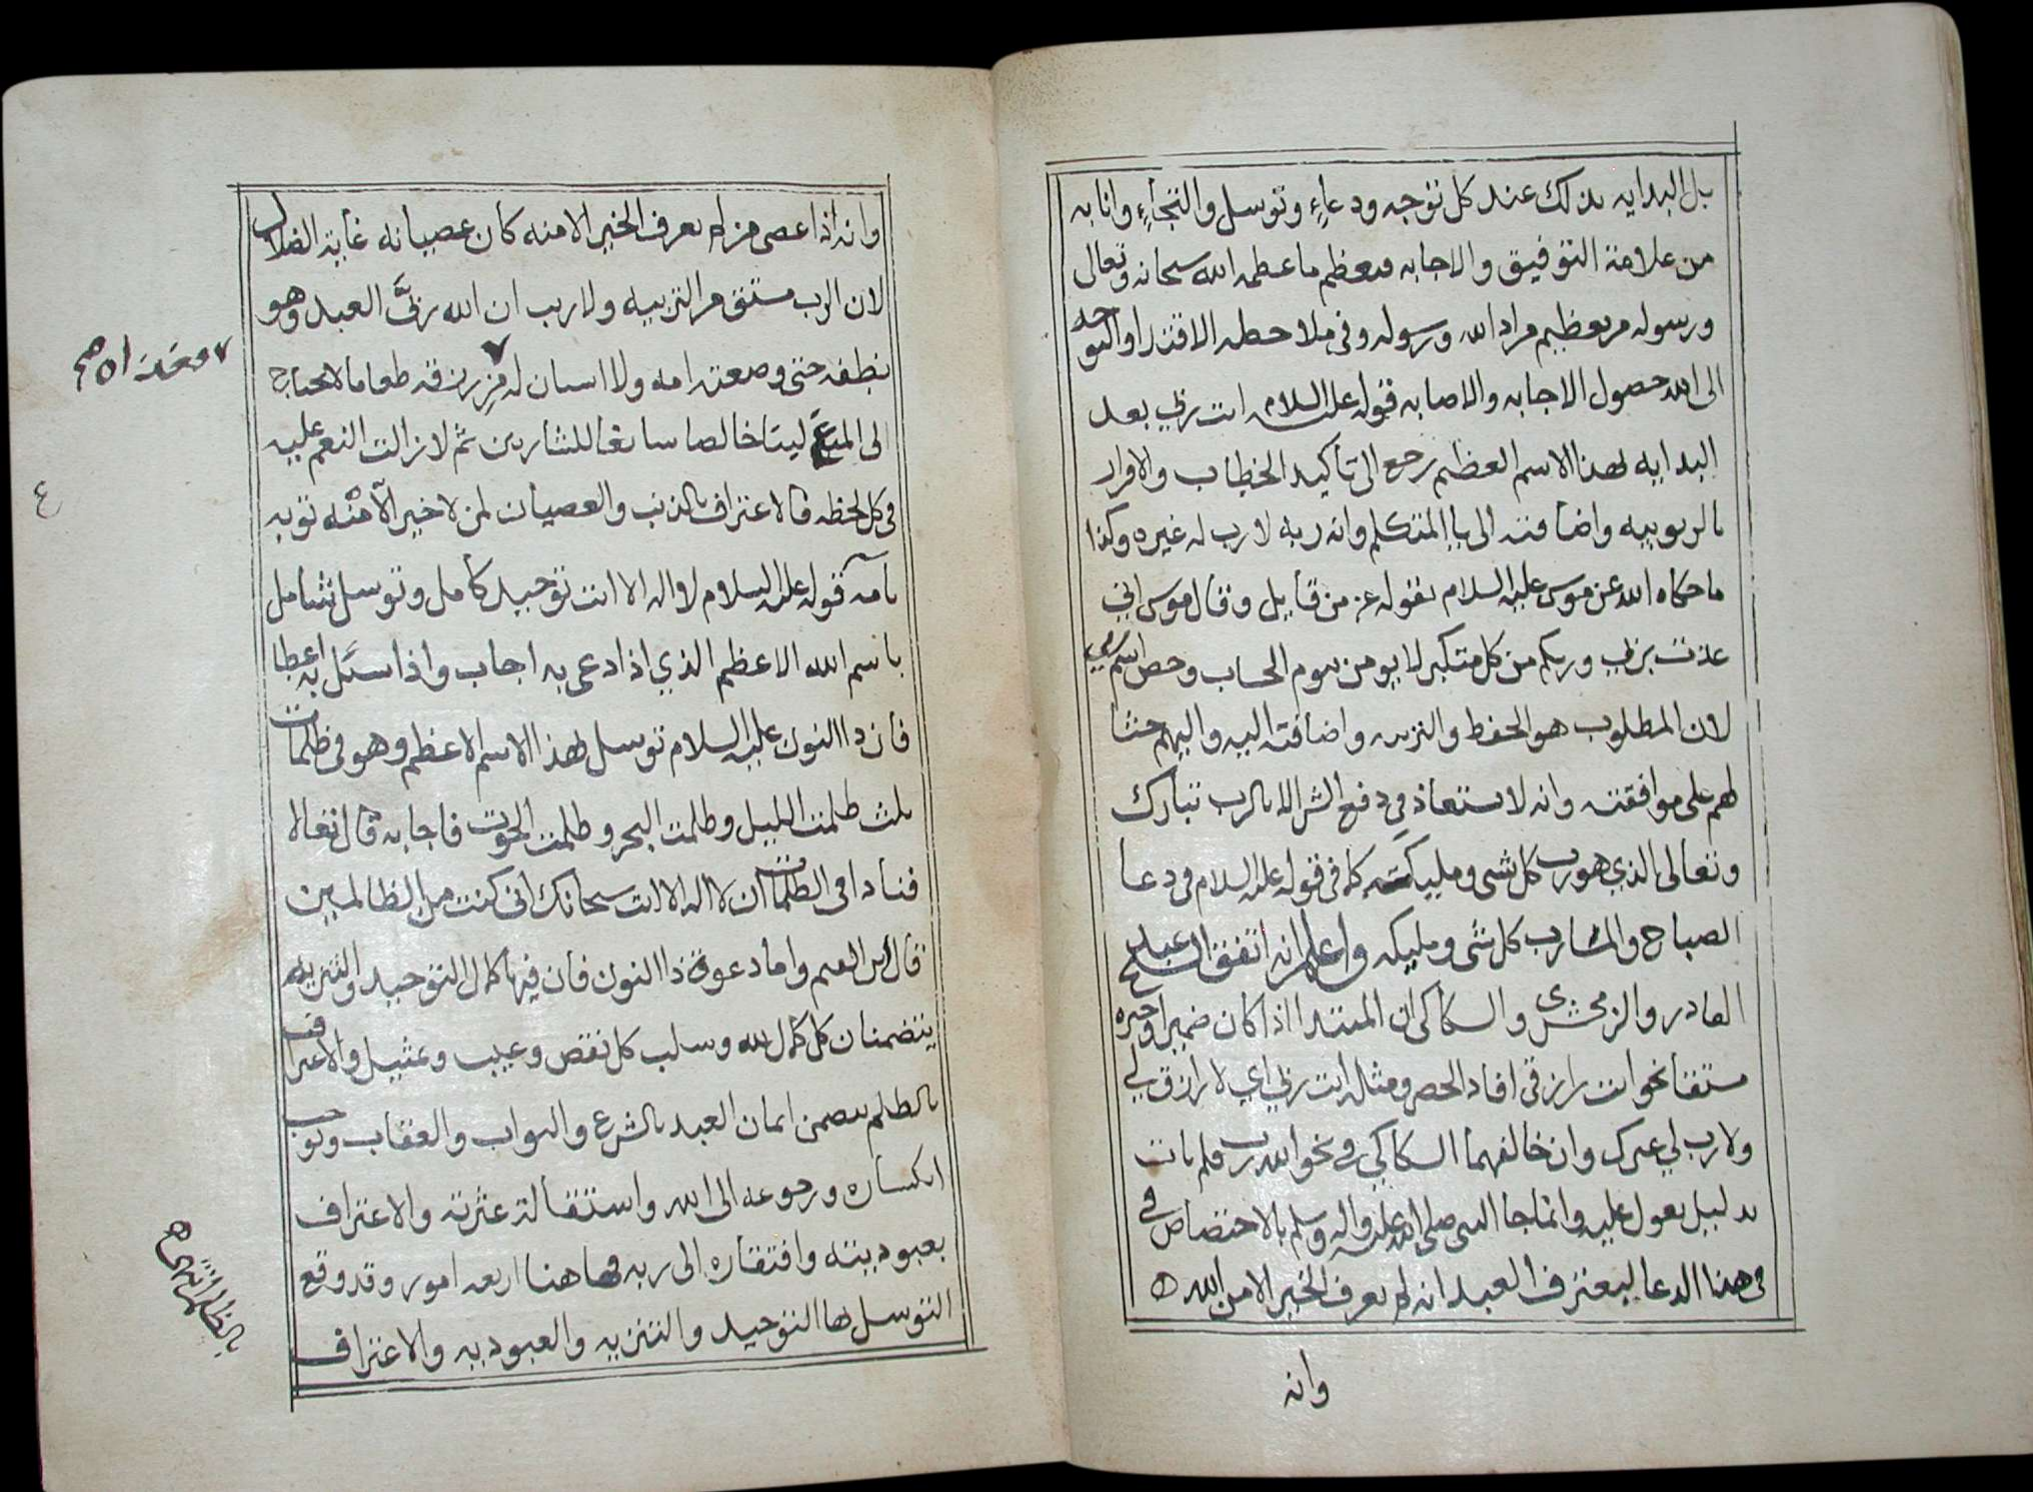 بل البدايه بذلك عند كل توجه ودعاءٍ وتوسل والتجاءٍ وانابه
من علامة التوفيق والاجابه فتعظم ما عظمه الله سبحانه وتعالى
ورسوله من تعظيم مراد الله ورسوله وفي ملاحظه الاقتدا والتوجه
الى الله حصول الاجابه والاصابه قوله عليه السلام انت ربي بعد
البدايه بهذا الاسم العظيم رجع الى تأكيد الخطاب والاقرار
بالربوبيه واضافته الى يا المتكلم وانه ربه لا رب له غيره وكذا
ما حكاه الله عن موسى عليه السلام بقوله عز من قايل وقال موسى اني
عذت بربي وربكم من كل متكبر لا يومن بيوم الحساب وخص اسم
لان المطلوب هو الحفظ والتربيه واضافته اليه واليهم حثا
لهم على موافقته وانه لا يستعاذ في دفع الشر الا بالرب تبارك
وتعالى الذي هو رب كل شي ومليكه كما في قوله عليه السلام في دعا
الصباح والمسا رب كل شي ومليكه واعلم انه اتفق الشيخ عبد
القادر والزمخشري والسكاكي ان المبتدا اذا كان ضميرا وخبره
مشتقا نحو انت رازقي افاد الحصر ومثله انت ربي اي لا رازق لي
ولا رب لي غيرك وان خالفهما السكاكي في نحو الله رب فلم يات
بدليل يعول عليه وانما جا النبي صلى الله عليه واله وسلم بالاختصاص في
في هذا الدعا ليعترف العبد انه لم يعرف الخير الا من الله
وانه
وانه اذا عصى من لم يعرف الخير الا منه كان عصيانه غاية الضلال
لان الرب مشتق من التربيه ولا ريب ان الله ربَّى العبد وهو
نطفه حتى وضعته امه ولا اسنان له فرزقه طعاما لا يحتاج
الى المضغ لبنا خالصا سايغا للشاربين ثم لا زالت النعم عليه
في كل لحظه فالاعتراف بالذنب والعصيان لمن لا خير الا منه توبه
تآمه قوله عليه السلام لا اله الا انت توحيد كامل وتوسل شامل
باسم الله الاعظم الذي اذا دعي به اجاب واذا سئل به اعطا
فان ذا النون عليه السلام توسل بهذا الاسم الاعظم وهو في ظلمات
ثلث ظلمت الليل وظلمت البحر وظلمت الحوت فاجابه قال تعالا
فنادا في الظلمات ان لا اله الا انت سبحانك اني كنت من الظالمين
قال ابن القيم واما دعوة ذا النون فان فيها كمال التوحيد والتنزيه
يتضمنان كل كمال لله وسلب كل نقص وعيب وتمثيل والاعتراف
بالظلم يتضمن ايمان العبد بالشرع والثواب والعقاب وتوجب
انكساره ورجوعه الى الله واستقالة عثرته والاعتراف
بعبوديته وافتقاره الى ربه فها هنا اربعه امور وقد وقع
التوسل بها التوحيد والتنزيه والعبوديه والاعتراف